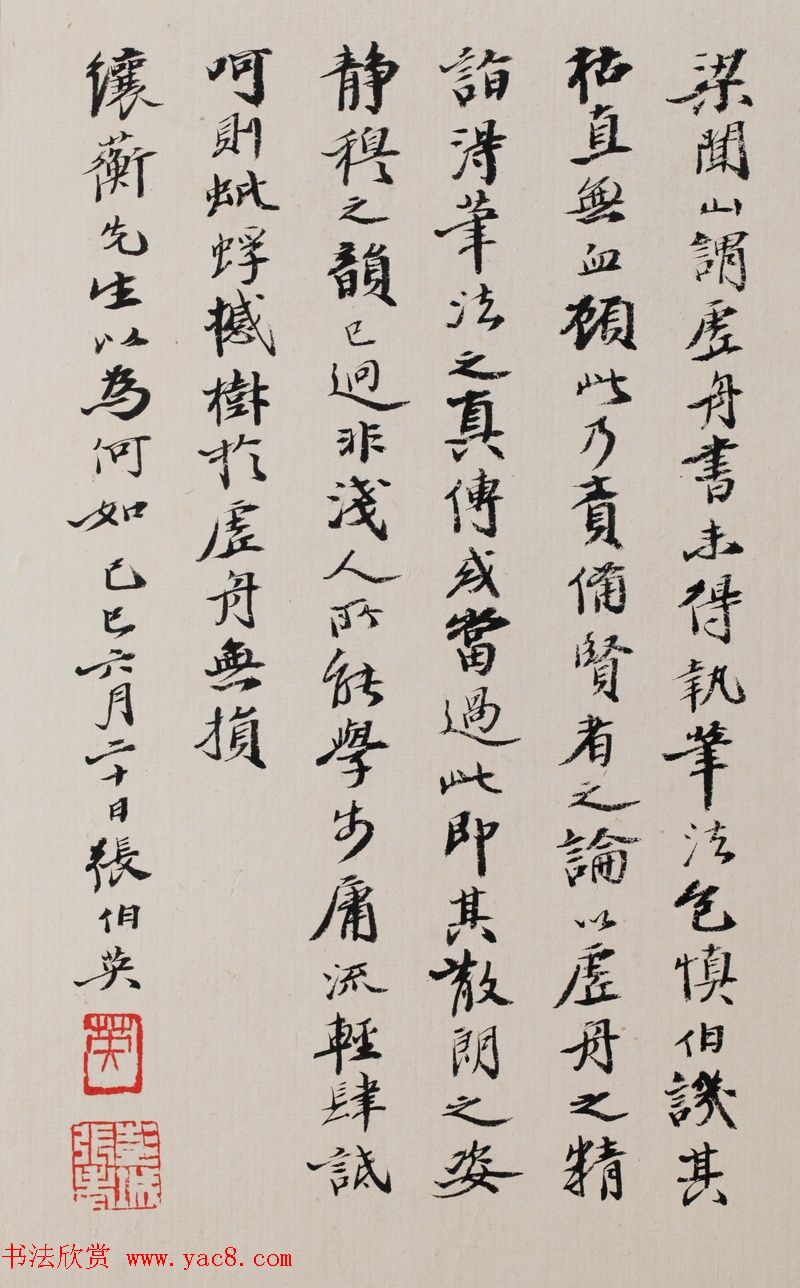 梁聞山謂虛舟書未得執筆法包慎伯譏其
枯直無血顧此乃責備賢者之論以虛舟之精
詣得筆法之真傳或當過此即其散朗之姿
靜穆之韻已迥非淺人所能學步庸流輕肆詆
呵則蚍蜉撼樹於虛舟無損
纕蘅先生以為何如己巳六月二十日張伯英
英
书法欣赏 www.yac8.com